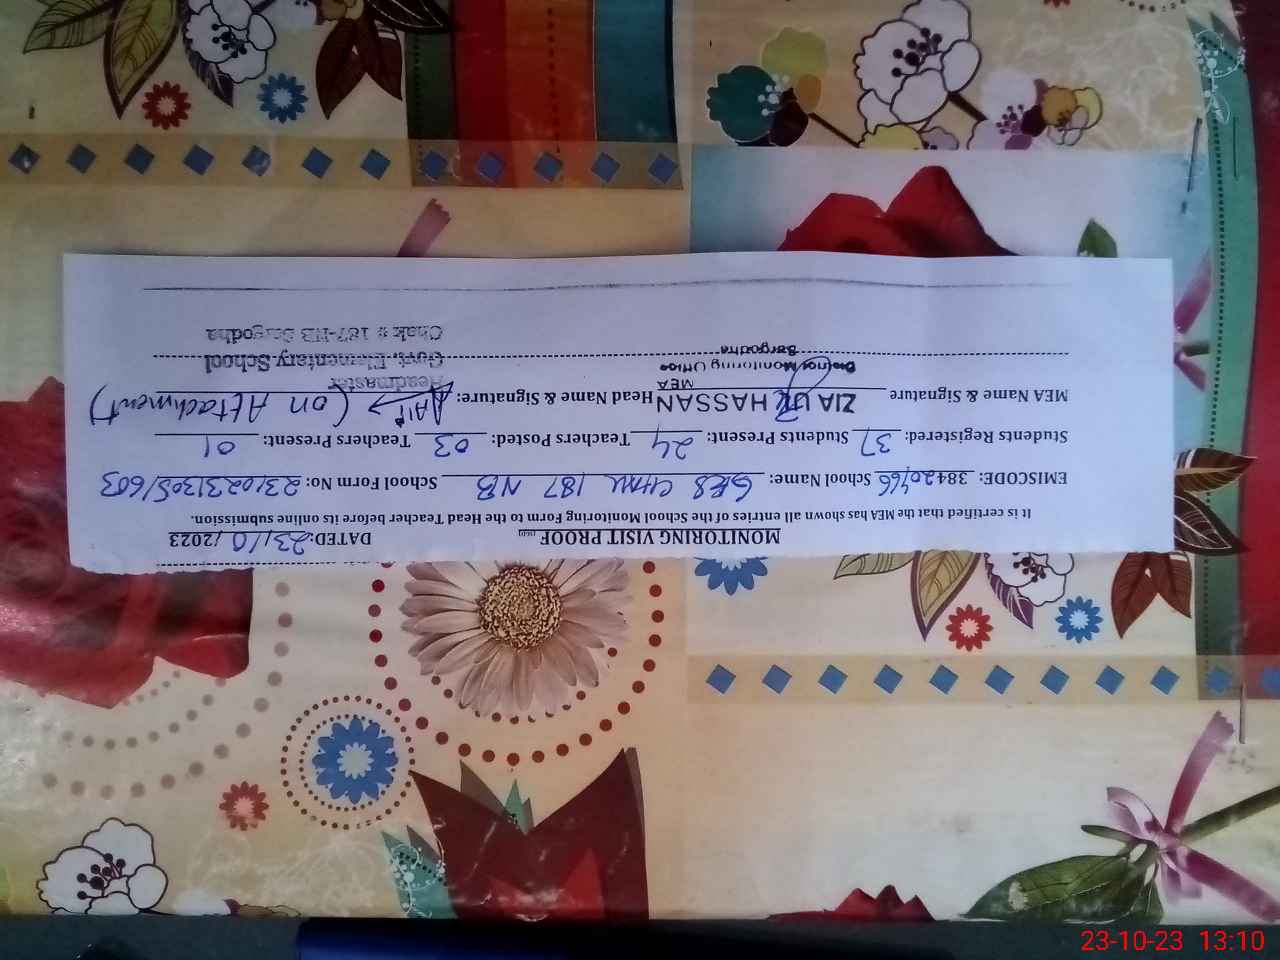 MONITORING VISIT PROOF DATED: 23/10/2023
It is certified that the MEA has shown all entries of the School Monitoring Form to the Head Teacher before its online submission.
EMISCODE: 38420166 School Name: GES CHAK 187 NB School Form No: 2310231305/603
Students Registered: 37 Students Present: 24 Teachers Posted: 03 Teachers Present: 01
MEA Name & Signature ZIA UL HASSAN Head Name & Signature: (on Attachment)
MEA Headmaster
District Monitoring Office Govt. Elementary School
Sargodha Chak # 187-NB Sargodha
23-10-23 13:10